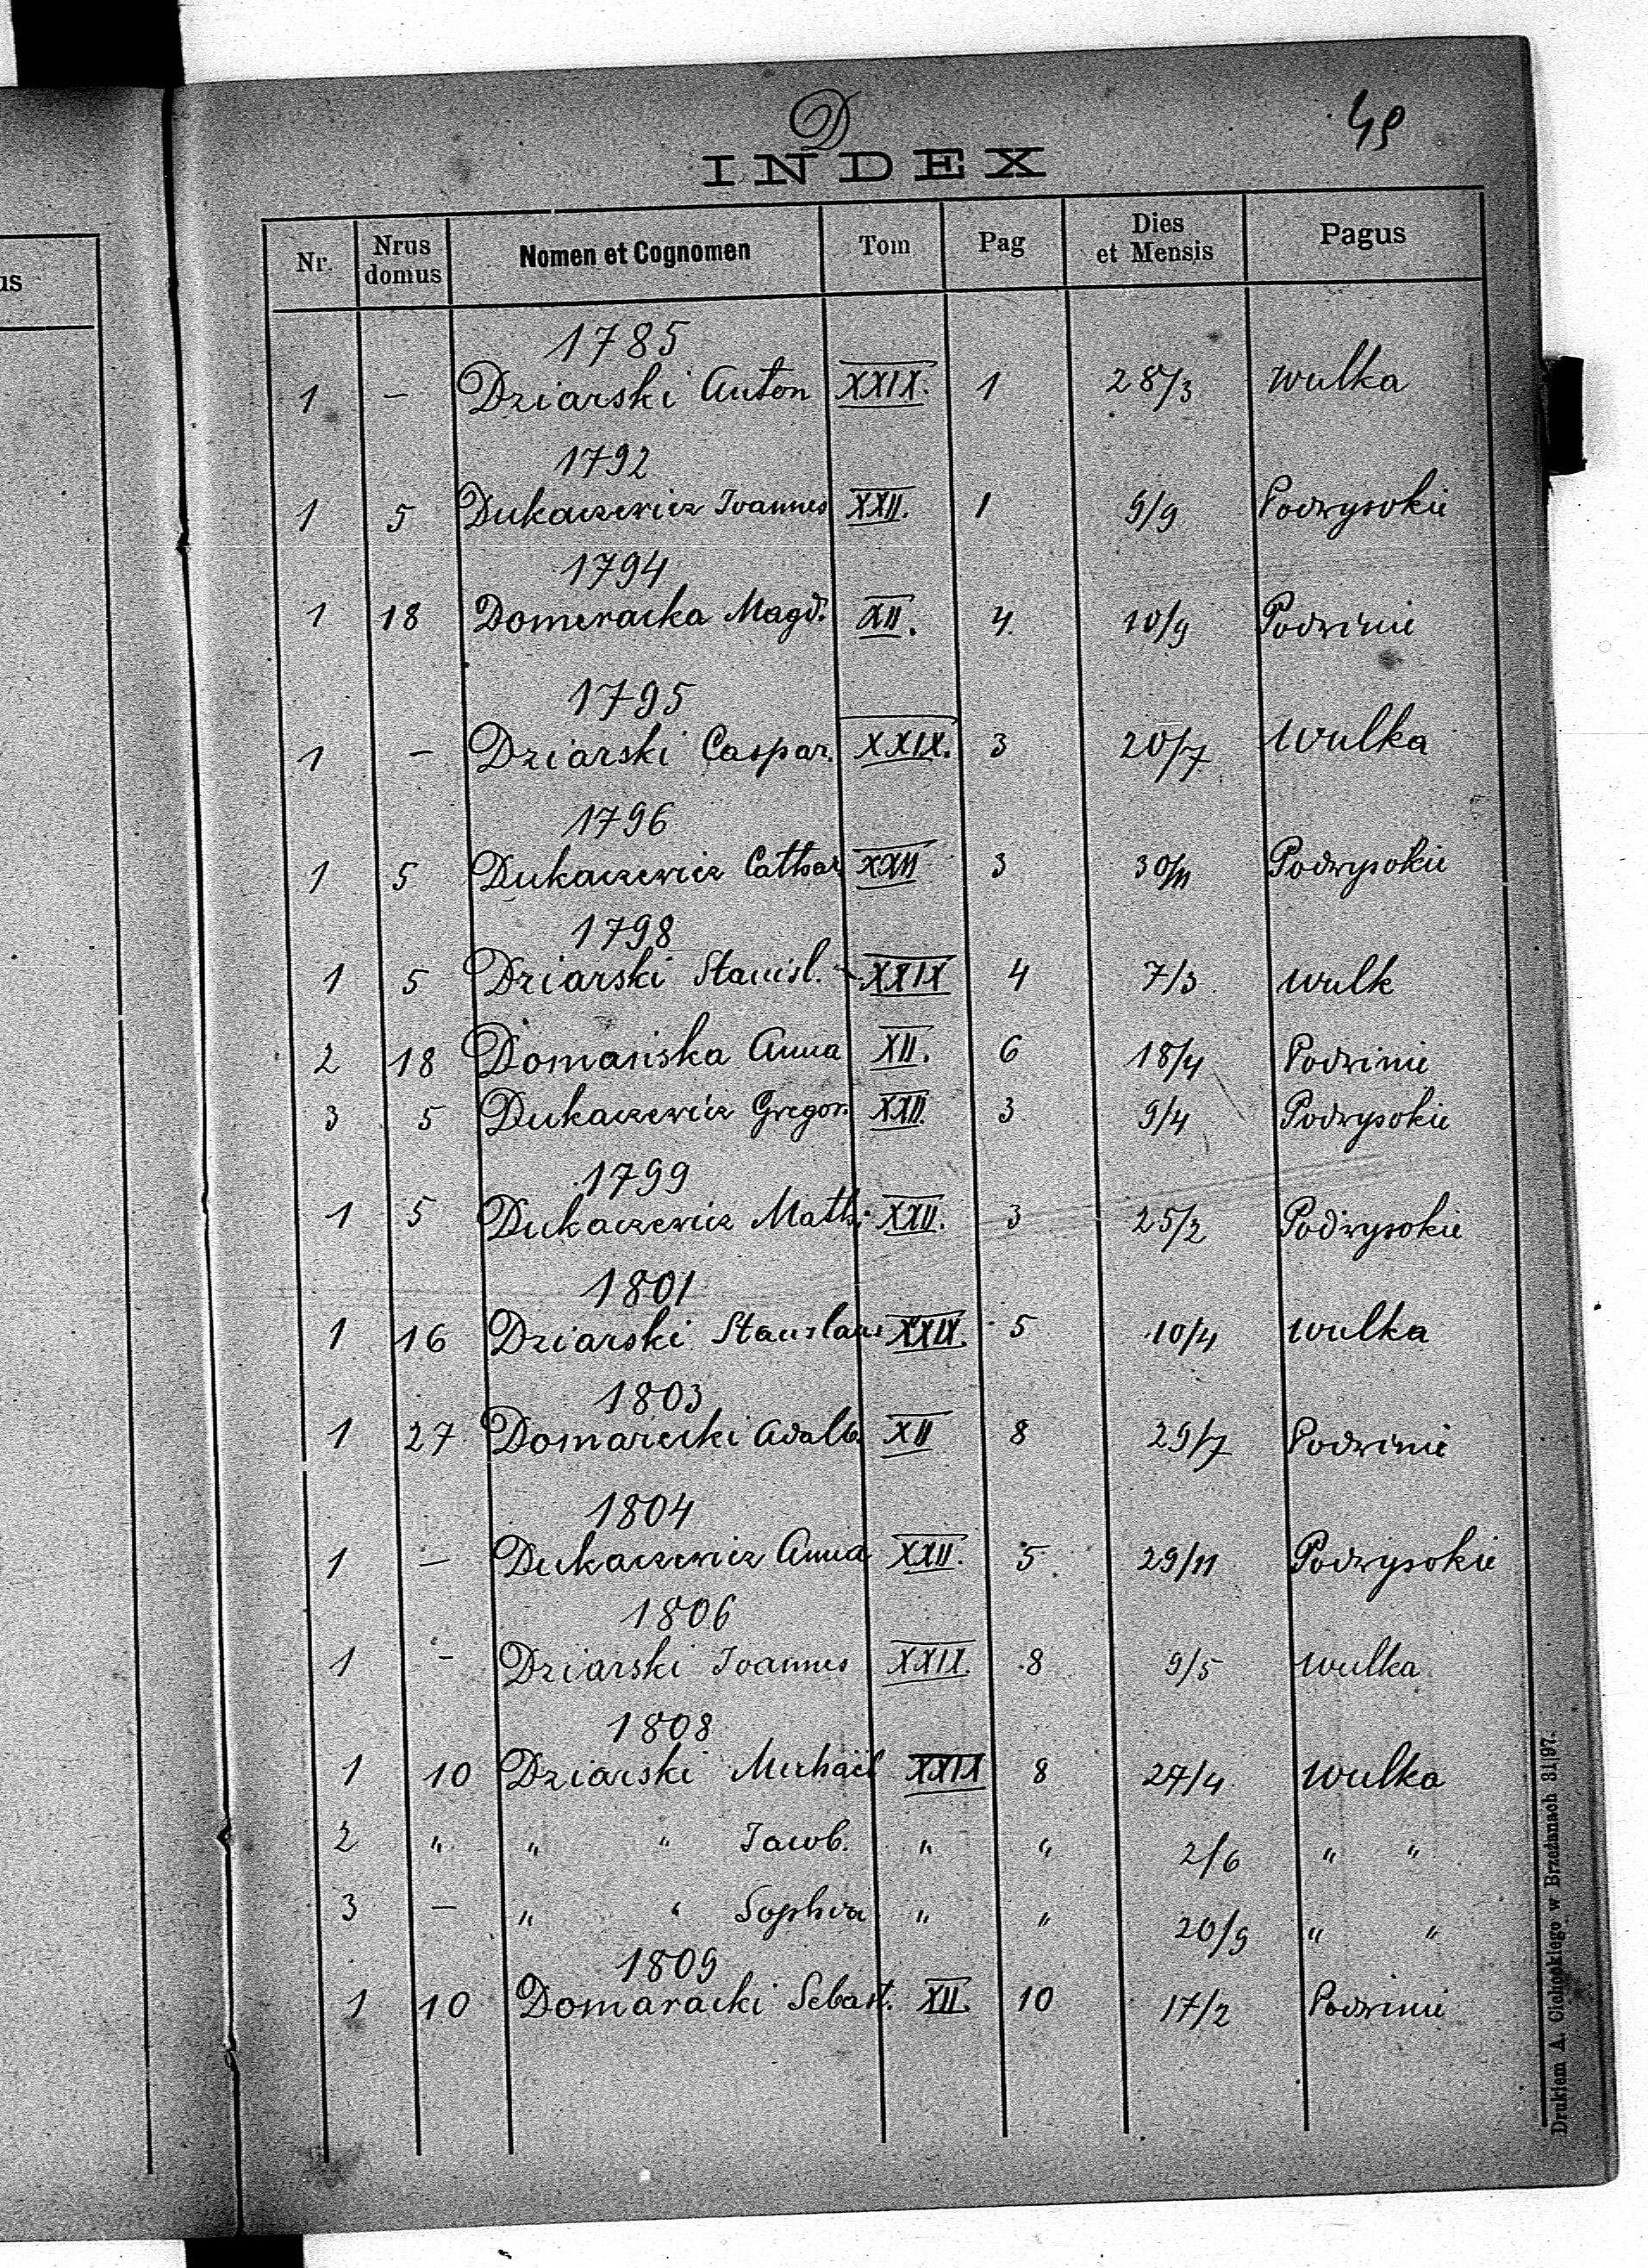 D
49
INDEX
us
Nr. Nrus domus Nomen et Cognomen Tom Pag Dies et Mensis Pagus
1785
1 – Dziarski Anton XXIX. 1 28/3 Wulka
1792
1 5 Dukaczewicz Joannes XXII. 1 9/9 Podwysokie
1794
1 18 Domeracka Magd. XII. 4. 10/9 Podwinie
1795
1 – Dziarski Caspar. XXIX. 3 20/7 Wulka
1796
1 5 Dukaczewicz Cathar XXII 3 30/11 Podwysokie
1798
1 5 Dziarski Stanisl. XXIX 4 7/3 Wulk
2 18 Domańska Anna XII. 6 18/4 Podwinie
3 5 Dukaczewicz Gregor. XXII. 3 9/4 Podwysokie
1799
1 5 Dukaczewicz Math. XXII. 3 25/2 Podwysokie
1801
1 16 Dziarski Stanislaus XXIX. 5 10/4 Wulka
1803
1 27 Domarecki Adalb. XII 8 29/7 Podwinie
1804
1 – Dukaczewicz Anna XXII. 5 29/11 Podwysokie
1806
1 – Dziarski Joannes XXIX. 8 9/5 Wulka
1808
1 10 Dziarski Michael XXIX 8 27/4 Wulka
2 " " " Jacob. " " 2/6 " "
3 – " " Sophia " " 20/9 " "
1809
1 10 Domaracki Sebast. XII. 10 17/2 Podwinie
Drukiem A. Cichockiego w Brzeżanach 31|97.